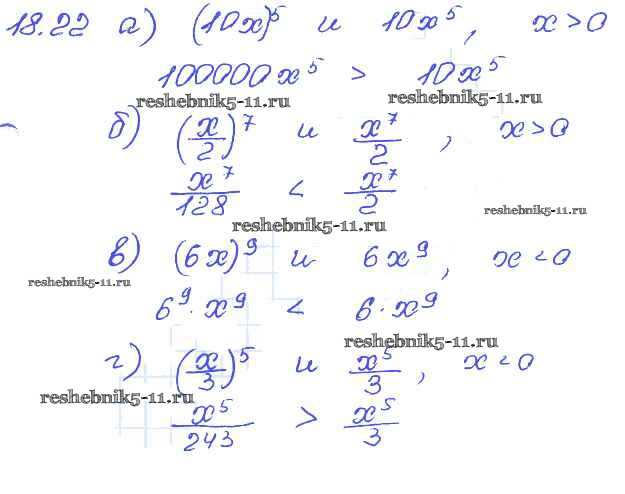 18.22 а) (10x)⁵ и 10x⁵, x > 0
100000x⁵ > 10x⁵
reshebnik5-11.ru reshebnik5-11.ru
б) (x/2)⁷ и x⁷/2, x > 0
x⁷/128 < x⁷/2
reshebnik5-11.ru
reshebnik5-11.ru
в) (6x)⁹ и 6x⁹, x < 0
reshebnik5-11.ru
6⁹ · x⁹ < 6 · x⁹
reshebnik5-11.ru
г) (x/3)⁵ и x⁵/3, x < 0
reshebnik5-11.ru
x⁵/243 > x⁵/3